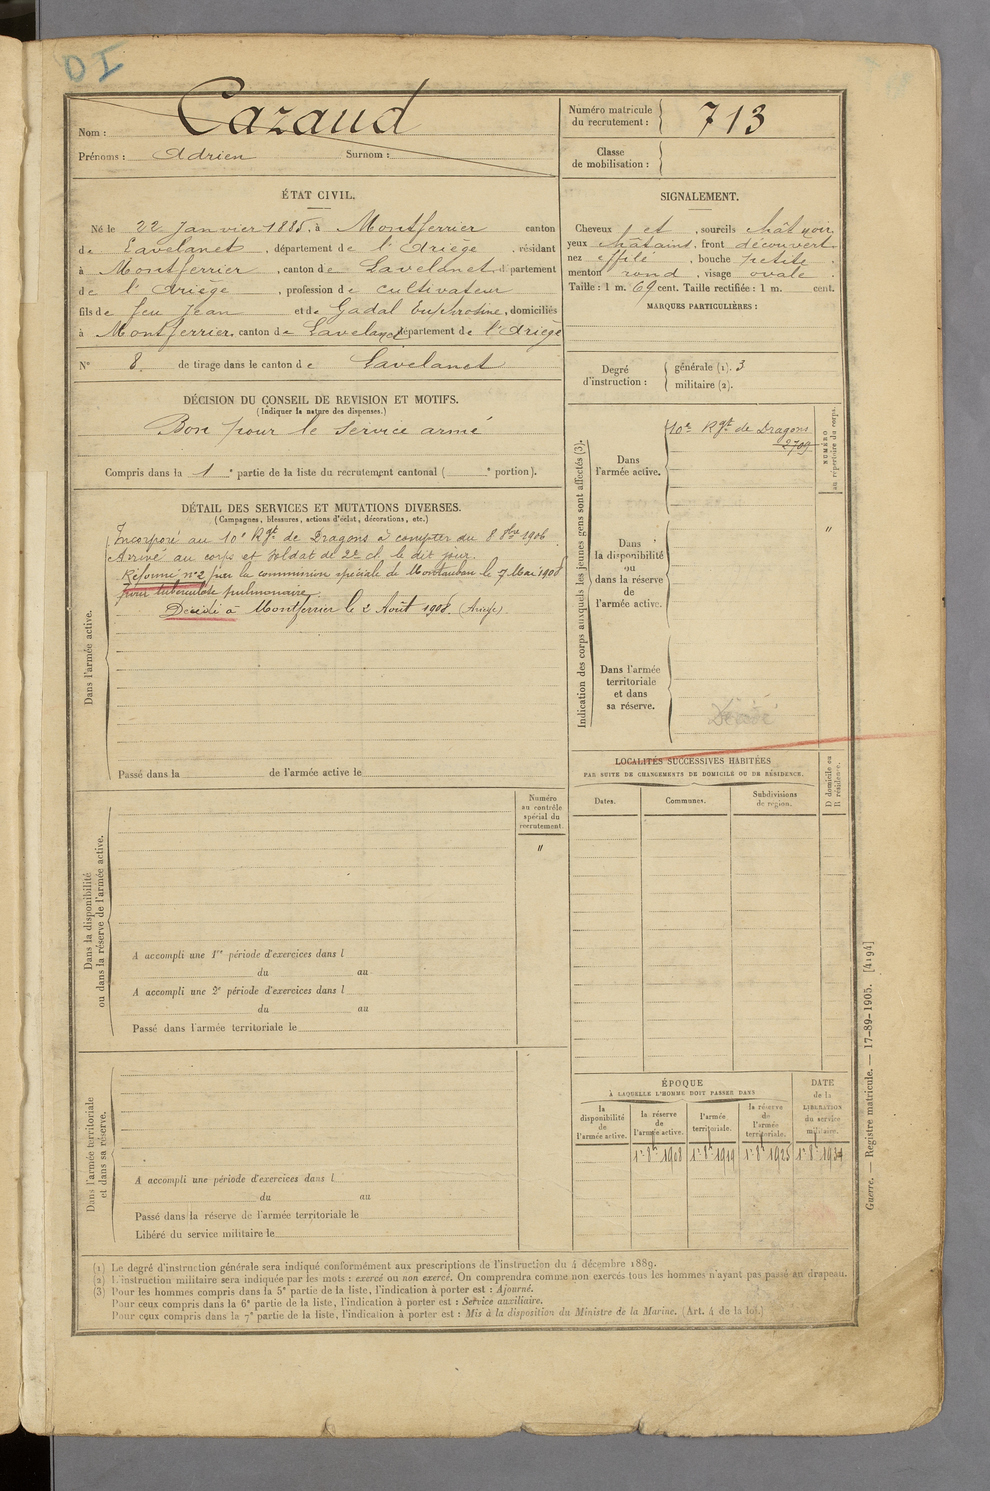 DI
Nom : Cazaud
Prénoms : Adrien Surnom :
Numéro matricule du recrutement : 713
Classe de mobilisation :
ÉTAT CIVIL.
Né le 22 Janvier 1885, à Montferrier canton
de Lavelanet, département de l'Ariège, résidant
à Montferrier, canton de Lavelanet, département
de l'Ariège, profession de cultivateur
fils de feu Jean et de Gadal Euphrosine, domiciliés
à Montferrier, canton de Lavelanet, département de l'Ariège
N° 8. de tirage dans le canton de Lavelanet
SIGNALEMENT.
Cheveux et, sourcils chât noir,
yeux châtains, front découvert.
nez effilé, bouche petite.
menton rond, visage ovale.
Taille : 1 m. 69 cent. Taille rectifiée : 1 m. cent.
MARQUES PARTICULIÈRES :
Degré d'instruction : générale (1). 3
militaire (2).
DÉCISION DU CONSEIL DE REVISION ET MOTIFS.
(Indiquer la nature des dispenses.)
Bon pour le service armé
Compris dans la 1e partie de la liste du recrutement cantonal ( e portion).
DÉTAIL DES SERVICES ET MUTATIONS DIVERSES.
(Campagnes, blessures, actions d'éclat, décorations, etc.)
Dans l'armée active.
Incorporé au 10e Rgt de Dragons à compter du 8 8bre 1906.
Arrivé au corps et soldat de 2e cl. le dit jour.
Réformé n°2 par la commission spéciale de Montauban le 7 Mai 1908
pour tuberculose pulmonaire.
Décédé à Montferrier le 2 Août 1908. (Ariège)
Passé dans la de l'armée active le
Indication des corps auxquels les jeunes gens sont affectés (3).
NUMÉRO au répertoire du corps.
Dans l'armée active.
10e Rgt de Dragons
2709
Dans la disponibilité ou dans la réserve de l'armée active.
"
Dans l'armée territoriale et dans sa réserve.
Décédé
LOCALITÉS SUCCESSIVES HABITÉES
PAR SUITE DE CHANGEMENTS DE DOMICILE OU DE RÉSIDENCE.
Dates. Communes. Subdivisions de région. D domicile ou R résidence.
Dans la disponibilité ou dans la réserve de l'armée active.
Numéro au contrôle spécial du recrutement.
"
A accompli une 1re période d'exercices dans l
du au
A accompli une 2e période d'exercices dans l
du au
Passé dans l'armée territoriale le
Dans l'armée territoriale et dans sa réserve.
A accompli une période d'exercices dans l
du au
Passé dans la réserve de l'armée territoriale le
Libéré du service militaire le
ÉPOQUE
À LAQUELLE L'HOMME DOIT PASSER DANS
la disponibilité de l'armée active.
la réserve de l'armée active.
l'armée territoriale.
la réserve de l'armée territoriale.
DATE de la LIBÉRATION du service militaire.
1er 8bre 1908 1er 8bre 1919 1er 8bre 1925 1er 8bre 1931
(1) Le degré d'instruction générale sera indiqué conformément aux prescriptions de l'instruction du 4 décembre 1889.
(2) L'instruction militaire sera indiquée par les mots : exercé ou non exercé. On comprendra comme non exercés tous les hommes n'ayant pas passé au drapeau.
(3) Pour les hommes compris dans la 5e partie de la liste, l'indication à porter est : Ajourné.
Pour ceux compris dans la 6e partie de la liste, l'indication à porter est : Service auxiliaire.
Pour ceux compris dans la 7e partie de la liste, l'indication à porter est : Mis à la disposition du Ministre de la Marine. (Art. 4 de la loi.)
Guerre. — Registre matricule. — 17-89-1905. [4194]